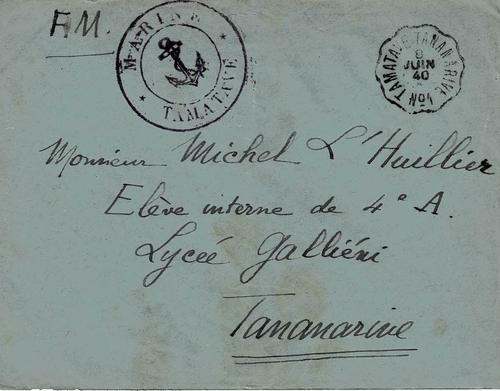 F.M.
MARINE
TAMATAVE
TAMATAVE-TANANARIVE
8
JUIN
40
N°1
Monsieur Michel L'Huillier
Elève interne de 4e A.
Lycée Galliéni
Tananarive